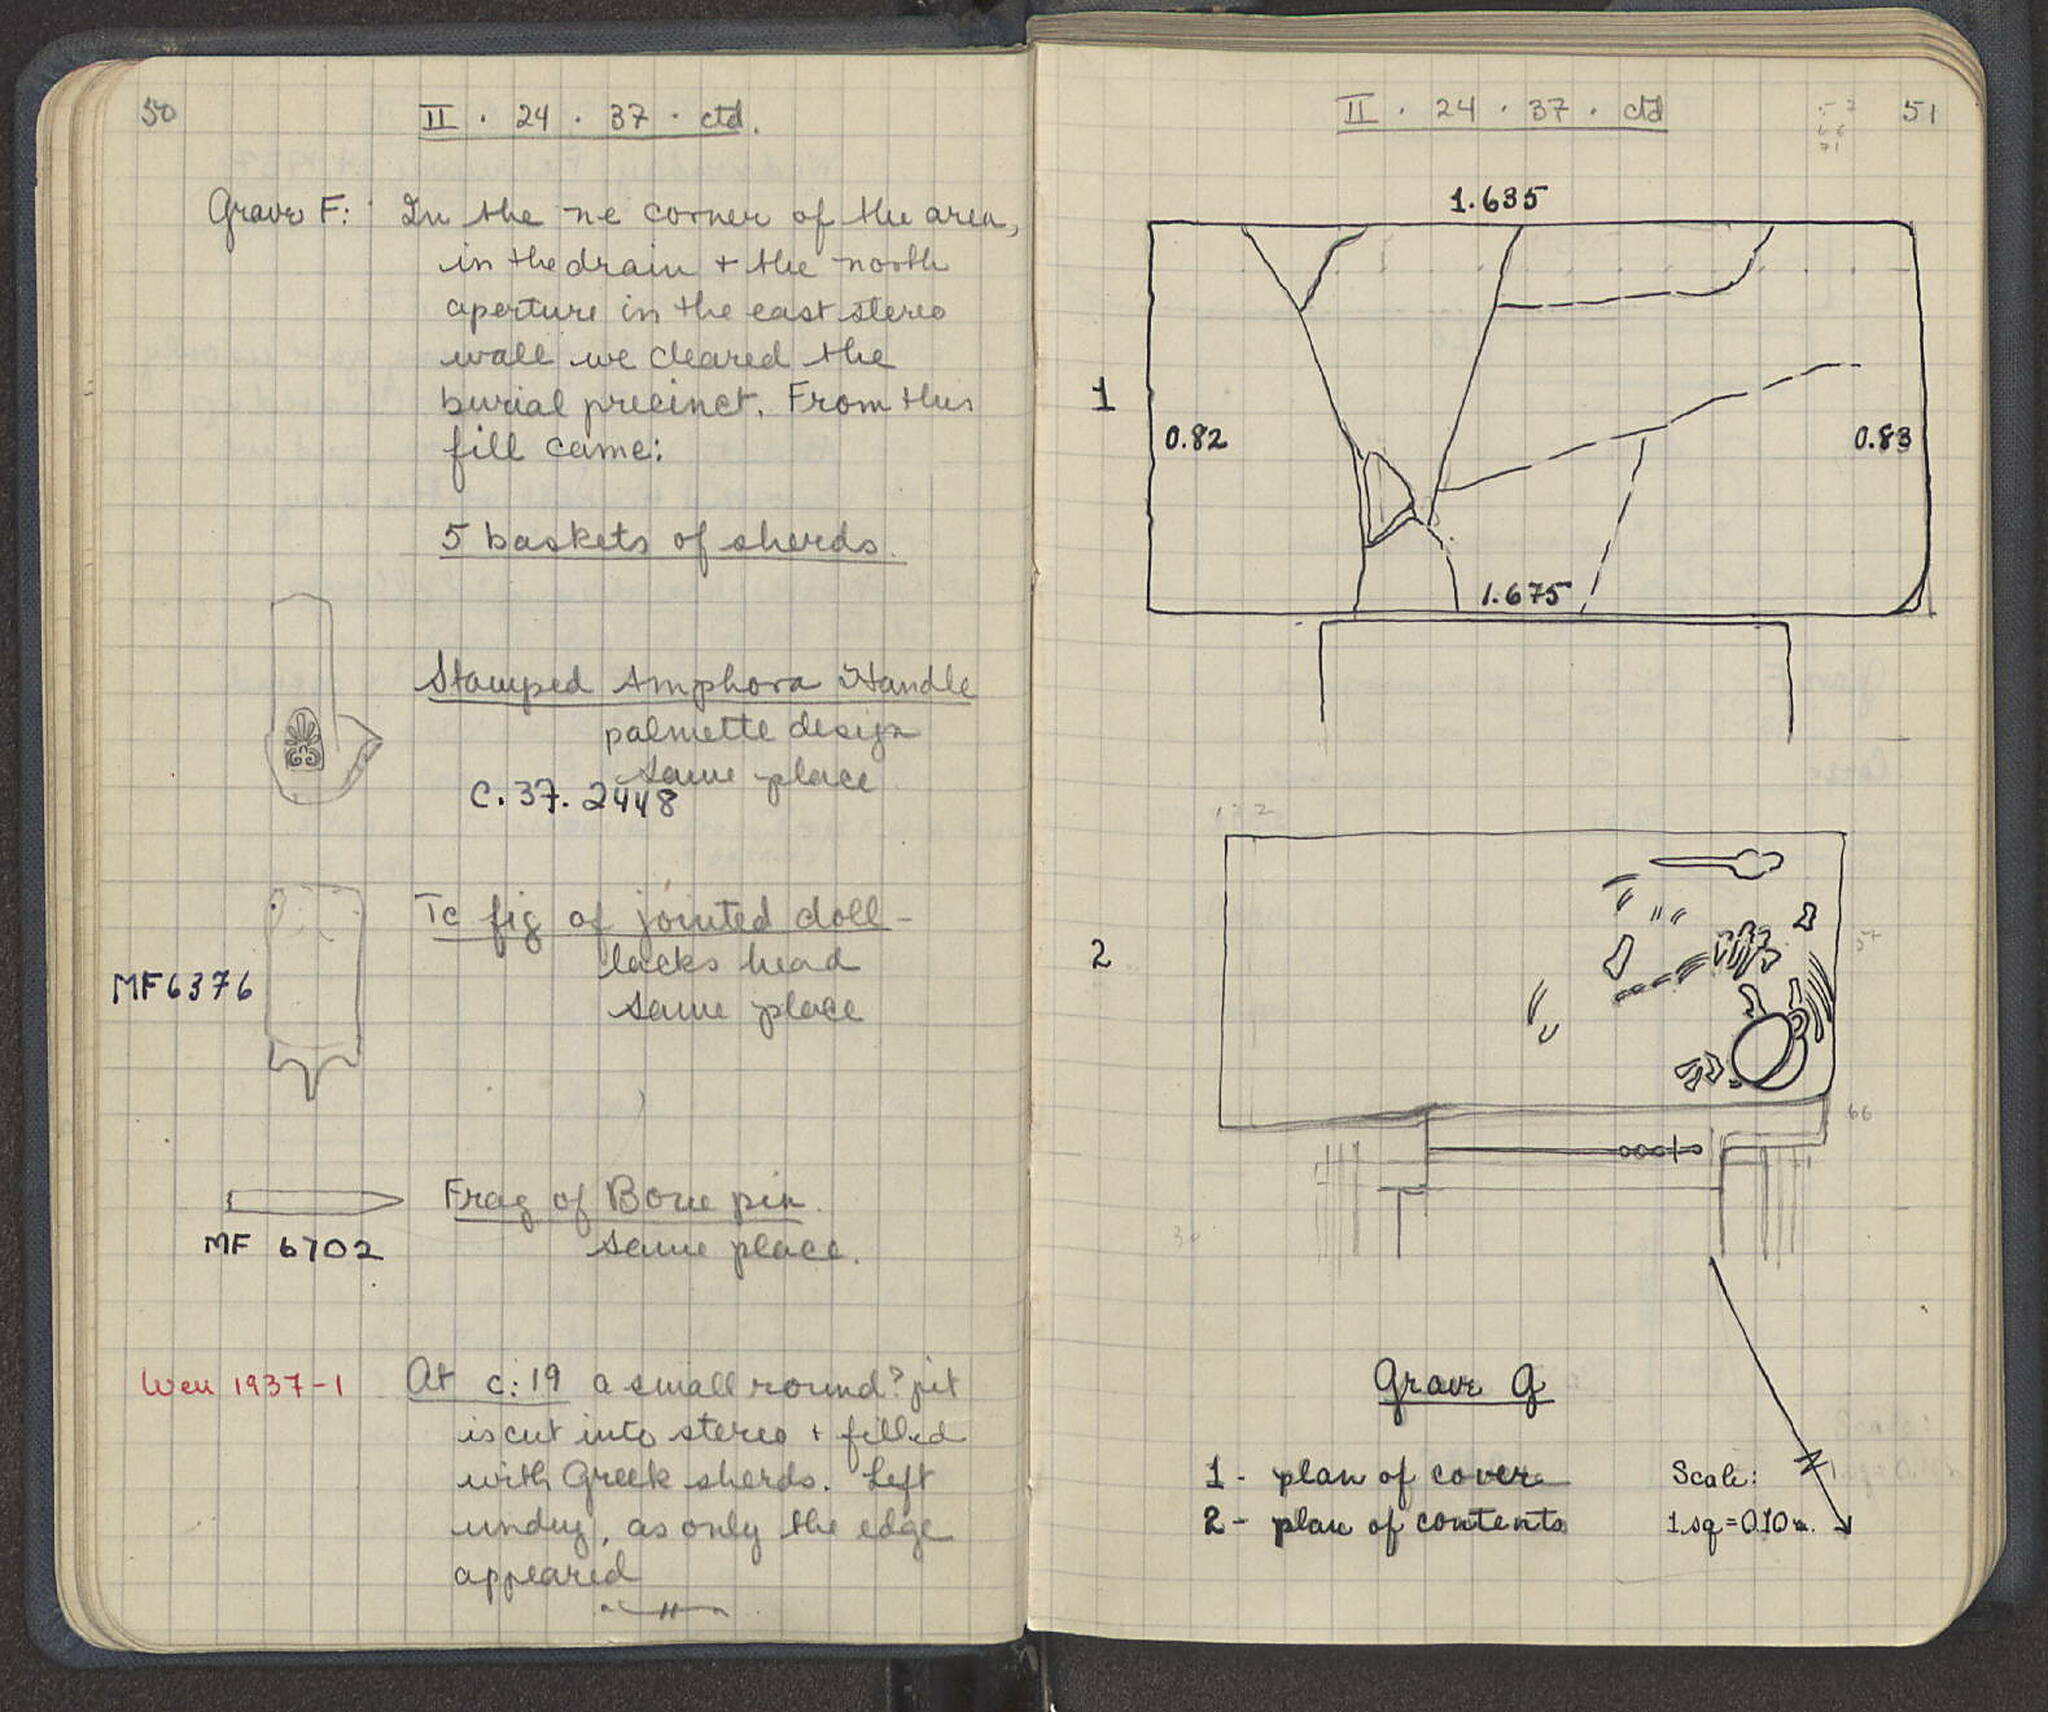 50
II · 24 · 37 · ctd.
Grave F: In the ne corner of the area,
in the drain + the north
aperture in the east stereo
wall we cleared the
burial precinct. From this
fill came:
5 baskets of sherds.
Stamped Amphora Handle
palmette design
same place
C. 37. 2448
Tc fig of jointed doll -
lacks head
same place
MF6376
Frag of Bone pin.
same place.
MF 6702
Well 1937-1
At c:19 a small round? pit
is cut into stereo + filled
with Greek sherds. Left
undug, as only the edge
appeared
II · 24 · 37 · ctd
51
1.635
1
0.82
0.83
1.675
2
57
66
Grave G
1 - plan of cover
2 - plan of contents
Scale:
1 sq = 0.10 m.